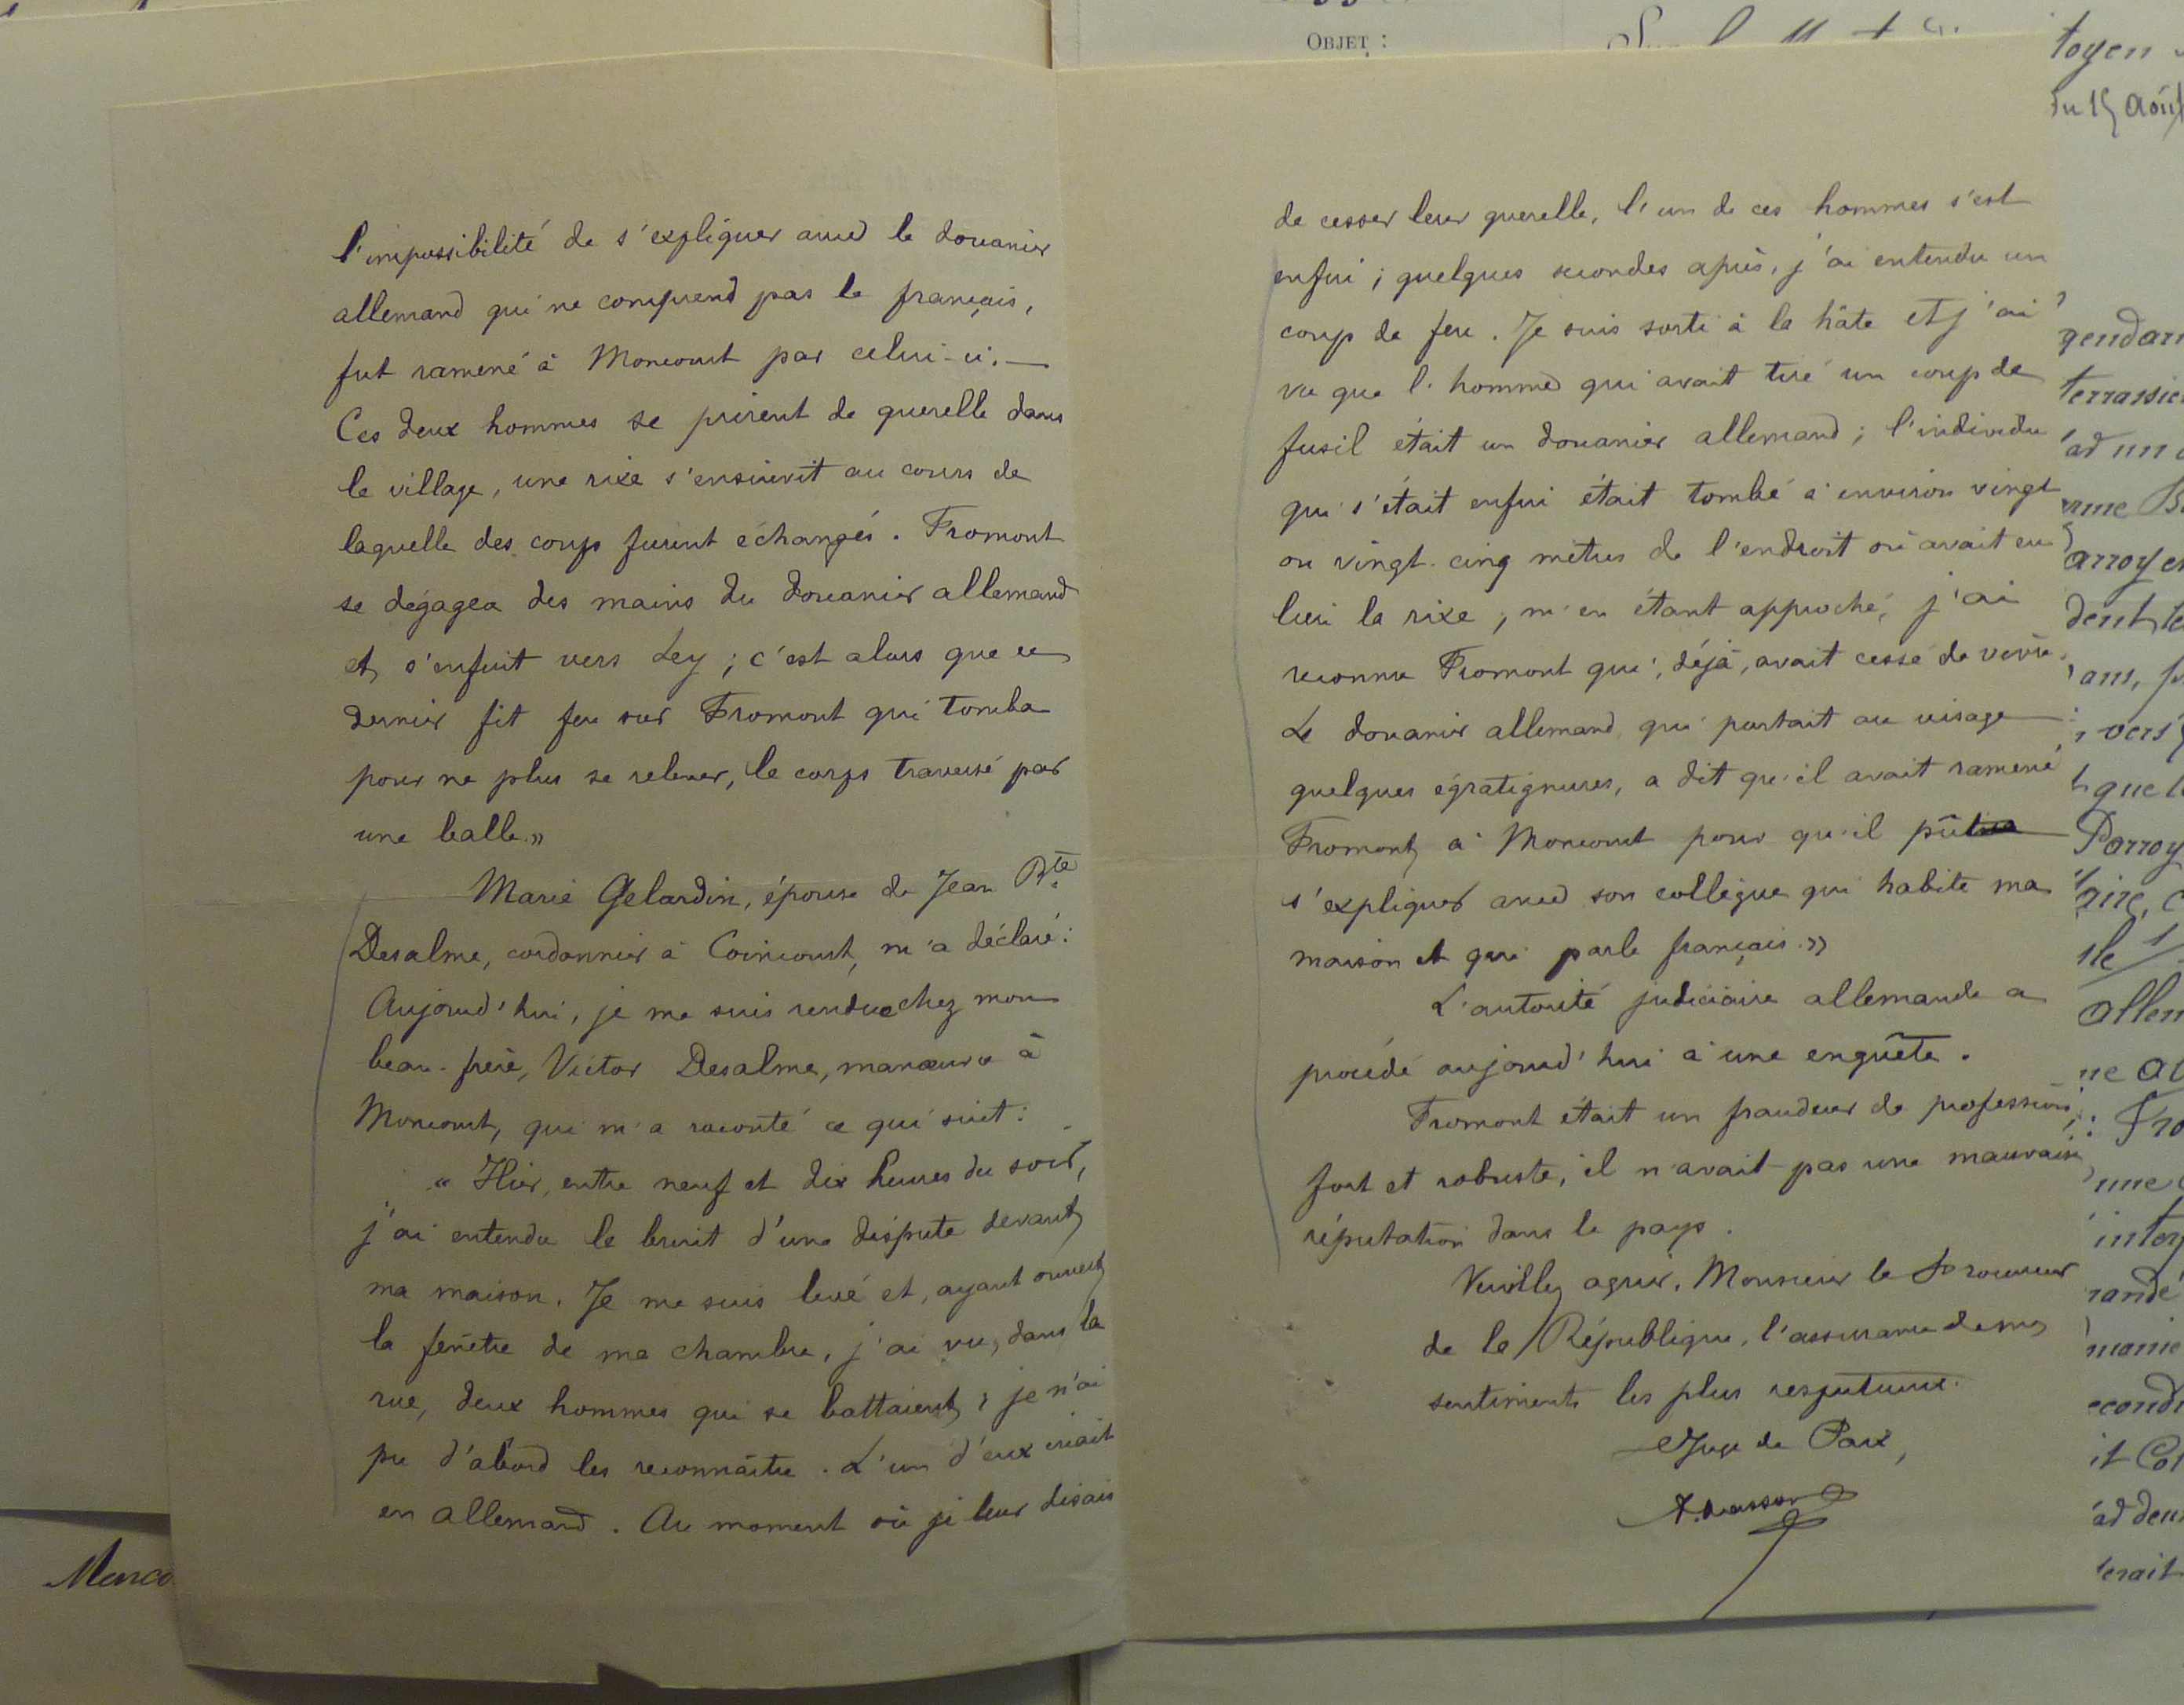 l'impossibilité de s'expliquer avec le douanier
allemand qui ne comprend pas le français,
fut ramené à Moncourt par celui-ci. —
Ces deux hommes se prirent de querelle dans
le village, une rixe s'ensuivit au cours de
laquelle des coups furent échangés. Fromont
se dégagea des mains du douanier allemand
et s'enfuit vers Ley ; c'est alors que ce
dernier fit feu sur Fromont qui tomba
pour ne plus se relever, le corps traversé par
une balle. »
Marie Gelardin, épouse de Jean Bte
Desalme, cordonnier à Coincourt, m'a déclaré :
Aujourd'hui, je me suis rendue chez mon
beau-frère, Victor Desalme, manœuvre à
Moncourt, qui m'a raconté ce qui suit :
« Hier, entre neuf et dix heures du soir,
j'ai entendu le bruit d'une dispute devant
ma maison. Je me suis levé et, ayant ouvert
la fenêtre de ma chambre, j'ai vu, dans la
rue, deux hommes qui se battaient ; je n'ai
pu d'abord les reconnaître. L'un d'eux criait
en allemand. Au moment où je leur disais
de cesser leur querelle, l'un de ces hommes s'est
enfui ; quelques secondes après, j'ai entendu un
coup de feu. Je suis sorti à la hâte et j'ai
vu que l'homme qui avait tiré un coup de
fusil était un douanier allemand ; l'individu
qui s'était enfui était tombé à environ vingt
ou vingt-cinq mètres de l'endroit où avait eu
lieu la rixe ; m'en étant approché, j'ai
reconnu Fromont qui, déjà, avait cessé de vivre.
Le douanier allemand, qui portait au visage
quelques égratignures, a dit qu'il avait ramené
Fromont à Moncourt pour qu'il pût
s'expliquer avec son collègue qui habite ma
maison et qui parle français. »
L'autorité judiciaire allemande a
procédé aujourd'hui à une enquête.
Fromont était un fraudeur de profession,
fort et robuste, il n'avait pas une mauvaise
réputation dans le pays.
Veuillez agréer, Monsieur le Procureur
de la République, l'assurance de mes
sentiments les plus respectueux.
Juge de Paix,
OBJET :
toyen
du 15 Août
terrassier
dent le
vers
que le
Parroy
allem
Fro
une